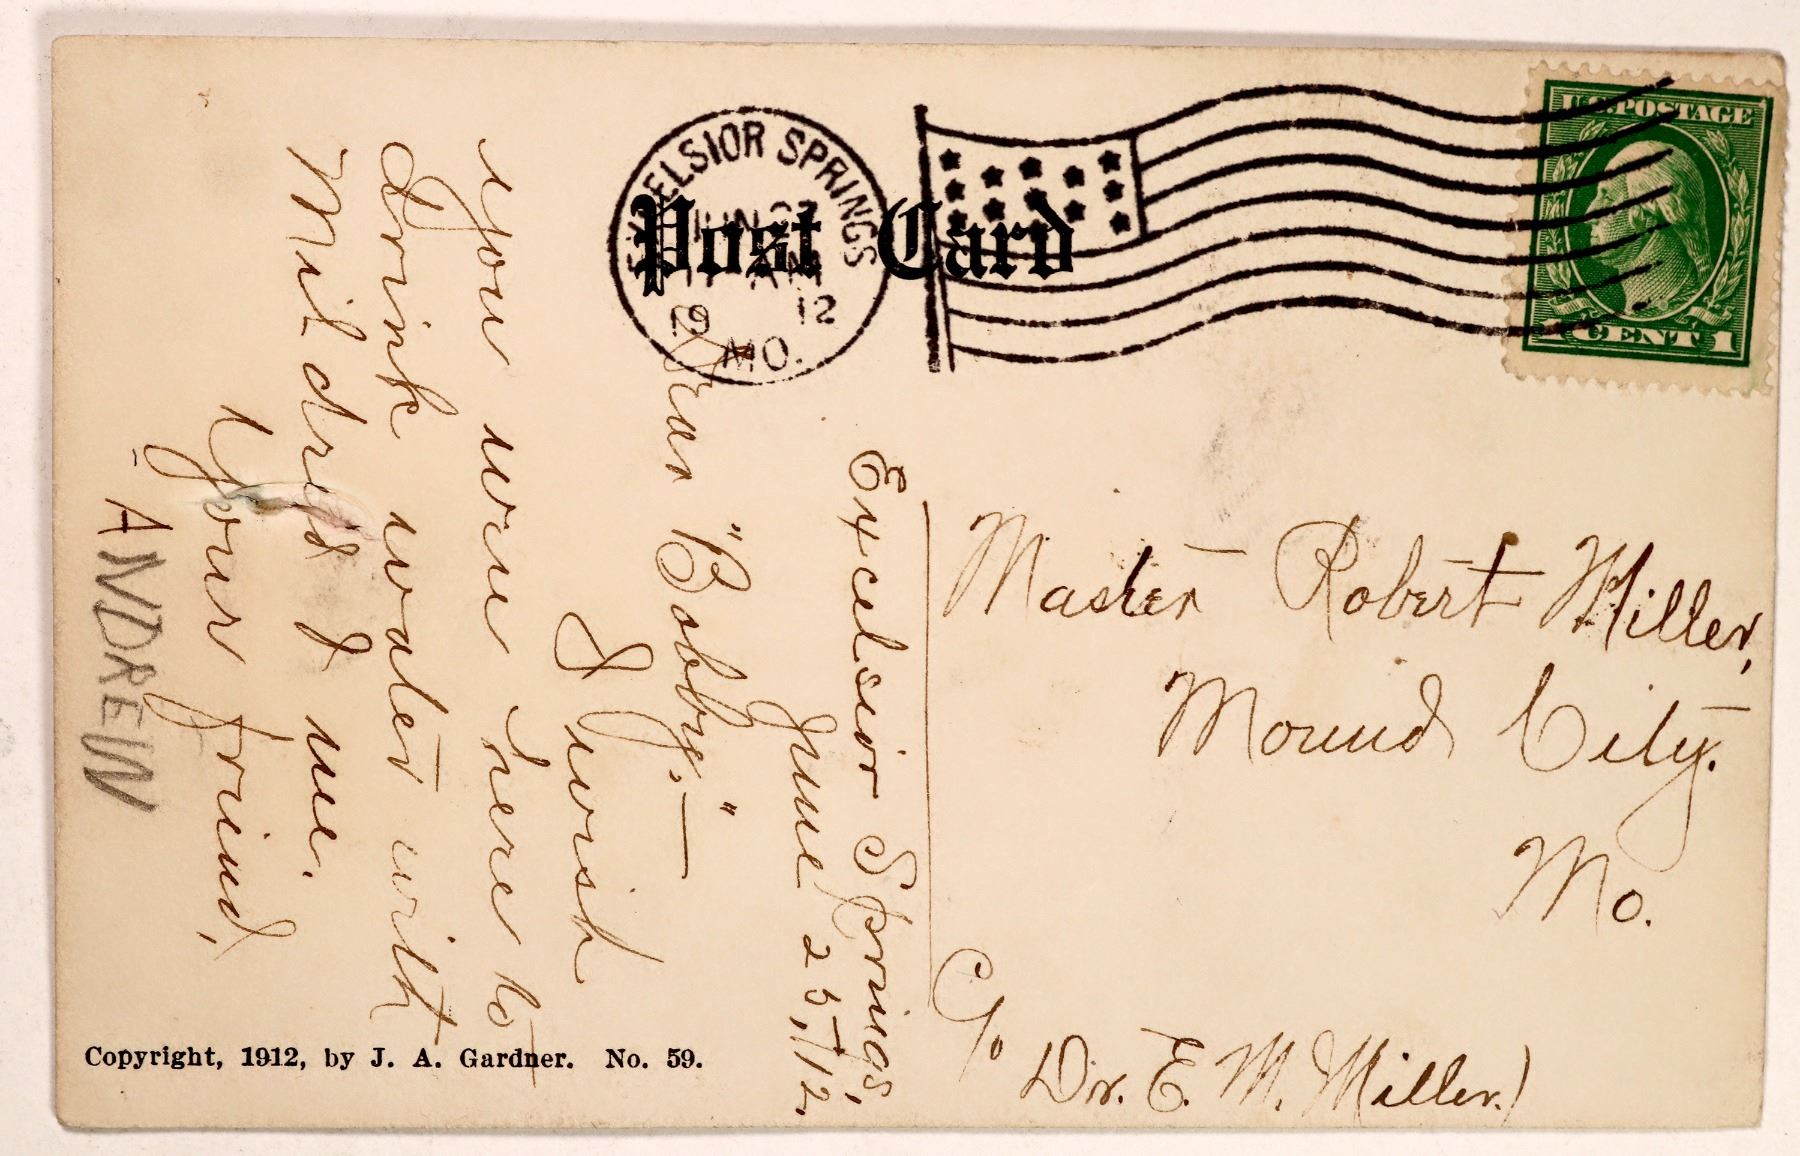 Post Card
EXCELSIOR SPRINGS
JUN 27
12
MO.
U.S. POSTAGE
1 CENT 1
Excelsior Springs,
June 25, 12.
Dear "Bobby." —
I wish
you were here to
Drink water with
Mildred & me.
Your friend,
ANDREW
Master Robert Miller,
Mound City.
Mo.
C/o
Dr. E. M. Miller.)
Copyright, 1912, by J. A. Gardner. No. 59.